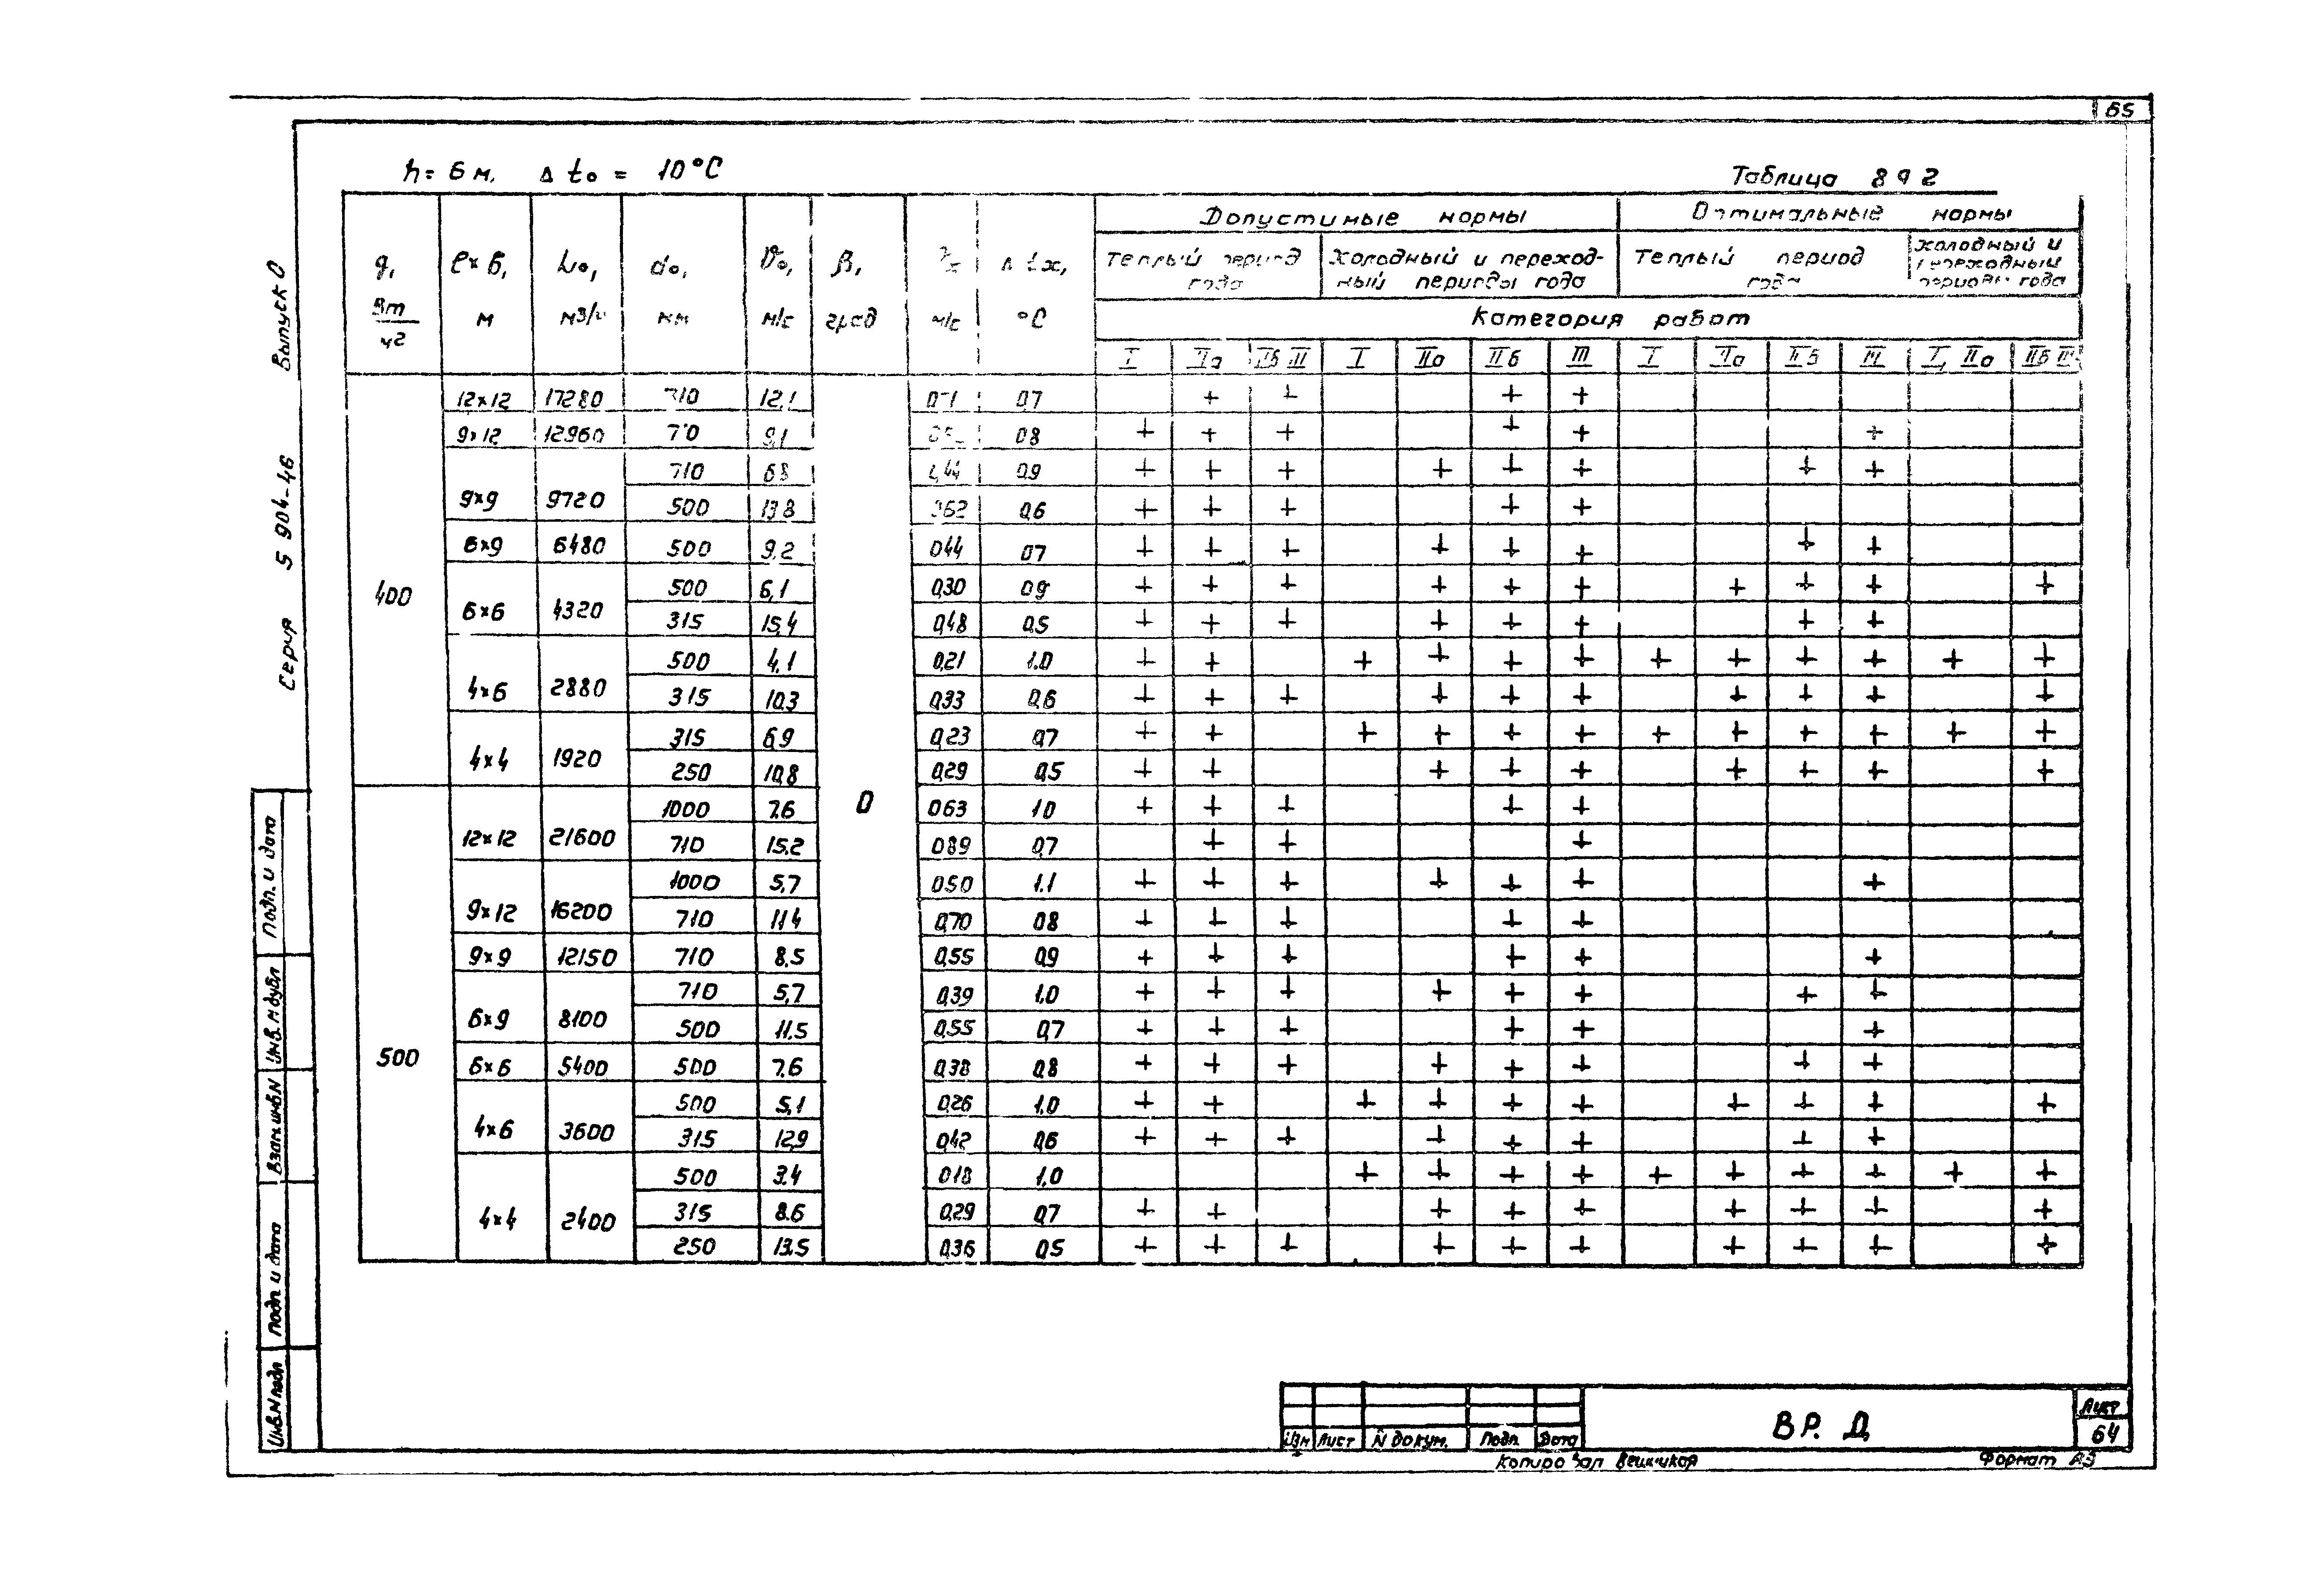 65
h = 6 м, Δ t₀ = 10°С
Таблица 8 9 2
q, Вт/м2 | ℓ×б, м | L₀, м3/ч | d₀, мм | V₀, м/с | β, град | м/с | Δ tх, °С | Допустимые нормы | Оптимальные нормы
Теплый период года | Холодный и переходный периоды года | Теплый период года | Холодный и переходный периоды года
Категория работ
I | IIа | IIб III | I | IIа | IIб | III | I | IIа | IIб | III | I, IIа | IIб III
400 | 12×12 | 17280 | 710 | 12,1 | 0 | 0,71 | 0,7 | | + | + | | | + | + | | | | | |
9×12 | 12960 | 710 | 9,1 | | 0,8 | + | + | + | | | + | + | | | | + | |
9×9 | 9720 | 710 | 6,8 | 0,44 | 0,9 | + | + | + | | + | + | + | | | + | + | |
500 | 13,8 | 0,62 | 0,6 | + | + | + | | | + | + | | | | | |
6×9 | 6480 | 500 | 9,2 | 0,44 | 0,7 | + | + | + | | + | + | + | | | + | + | |
6×6 | 4320 | 500 | 6,1 | 0,30 | 0,9 | + | + | + | | + | + | + | | + | + | + | | +
315 | 15,4 | 0,48 | 0,5 | + | + | + | | + | + | + | | | + | + | |
4×6 | 2880 | 500 | 4,1 | 0,21 | 1,0 | + | + | | + | + | + | + | + | + | + | + | + | +
315 | 10,3 | 0,33 | 0,6 | + | + | + | | + | + | + | | + | + | + | | +
4×4 | 1920 | 315 | 6,9 | 0,23 | 0,7 | + | + | | + | + | + | + | + | + | + | + | + | +
250 | 10,8 | 0,29 | 0,5 | + | + | | | + | + | + | | + | + | + | | +
500 | 12×12 | 21600 | 1000 | 7,6 | 0,63 | 1,0 | + | + | + | | | + | + | | | | | |
710 | 15,2 | 0,89 | 0,7 | | + | + | | | | + | | | | | |
9×12 | 16200 | 1000 | 5,7 | 0,50 | 1,1 | + | + | + | | + | + | + | | | | + | |
710 | 11,4 | 0,70 | 0,8 | + | + | + | | | + | + | | | | | |
9×9 | 12150 | 710 | 8,5 | 0,55 | 0,9 | + | + | + | | | + | + | | | | + | |
6×9 | 8100 | 710 | 5,7 | 0,39 | 1,0 | + | + | + | | + | + | + | | | + | + | |
500 | 11,5 | 0,55 | 0,7 | + | + | + | | | + | + | | | | + | |
6×6 | 5400 | 500 | 7,6 | 0,38 | 0,8 | + | + | + | | + | + | + | | | + | + | |
4×6 | 3600 | 500 | 5,1 | 0,26 | 1,0 | + | + | | + | + | + | + | | + | + | + | | +
315 | 12,9 | 0,42 | 0,6 | + | + | + | | + | + | + | | | + | + | |
4×4 | 2400 | 500 | 3,4 | 0,18 | 1,0 | | | | + | + | + | + | + | + | + | + | + | +
315 | 8,6 | 0,29 | 0,7 | + | + | | | + | + | + | | + | + | + | | +
250 | 13,5 | 0,36 | 0,5 | + | + | + | | + | + | + | | + | + | + | | +
Серия 5 904-46 Выпуск 0
Подп. и дата
Инв. № дубл
Взам. инв. №
Подп. и дата
Инв. № подл
Изм Лист № докум. Подп. Дата
ВР. Д
Лист
64
Копировал
Формат А3